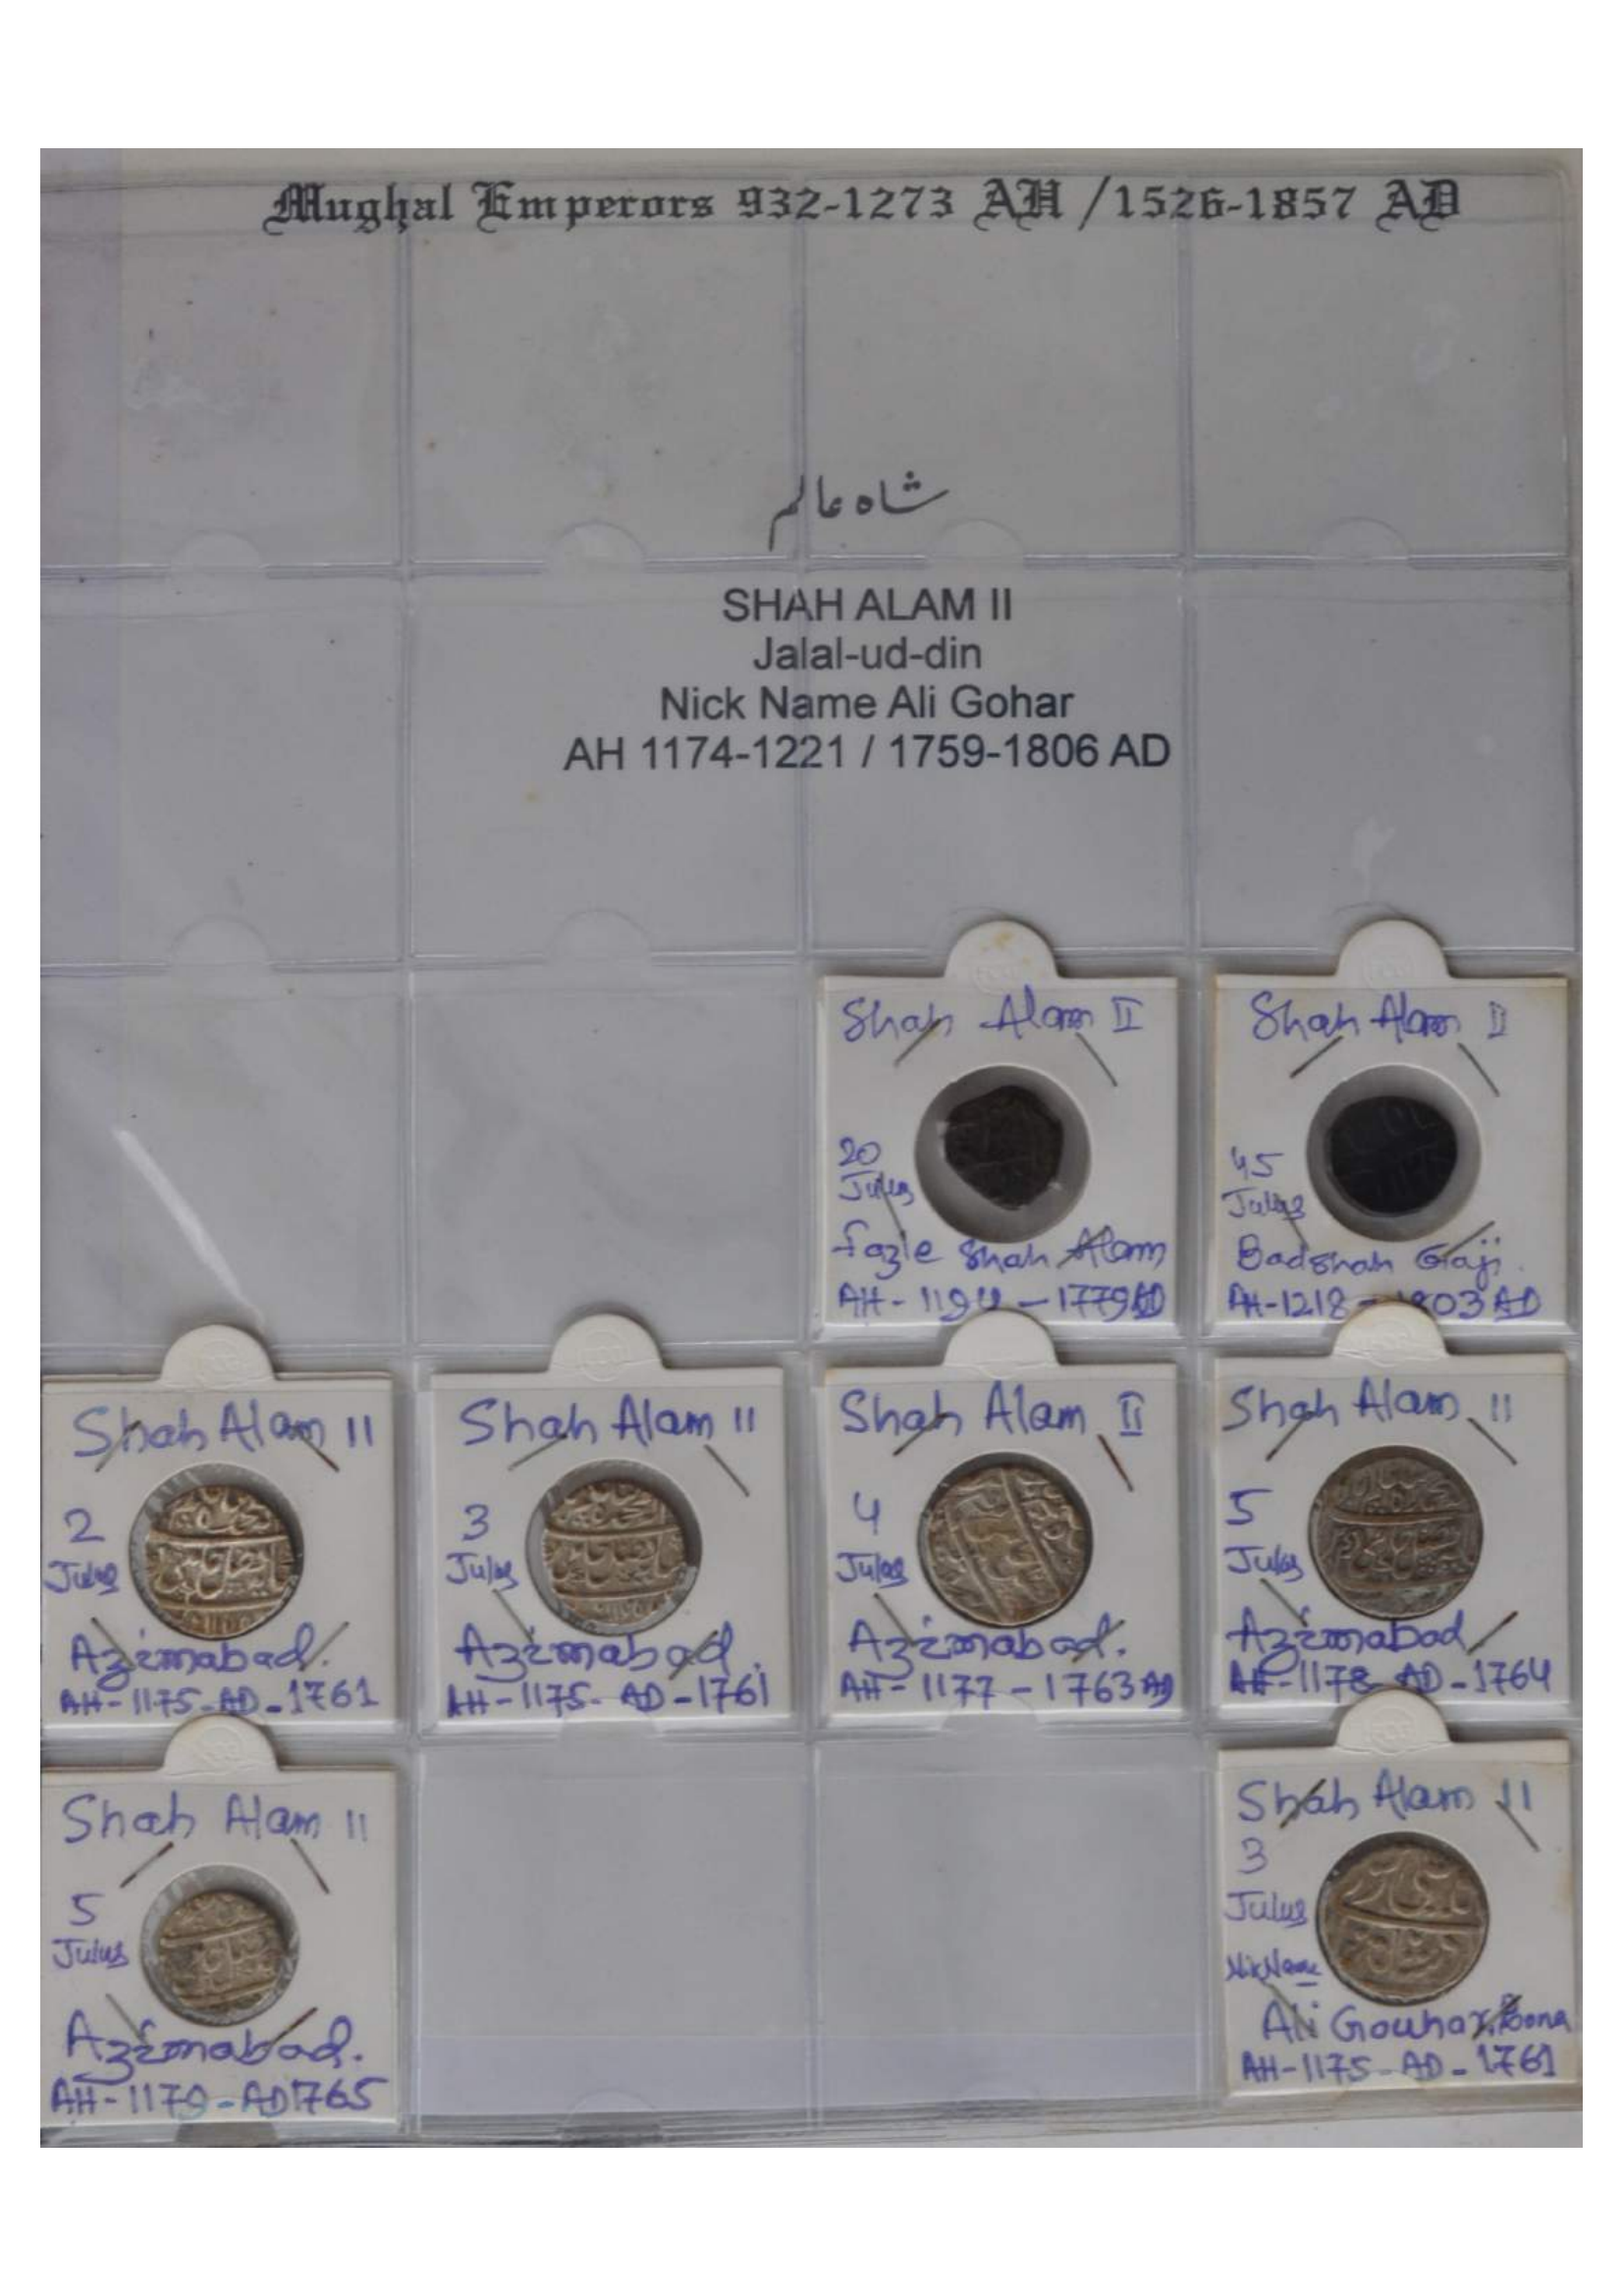 Mughal Emperors 932-1273 AH /1526-1857 AD
شاہ عالم
SHAH ALAM II
Jalal-ud-din
Nick Name Ali Gohar
AH 1174-1221 / 1759-1806 AD
Shah Alam II
20
Julus
Fazle Shah Alam
AH - 1194 - 1779 AD
Shah Alam II
45
Julus
Badshah Gaji.
AH-1218 - 1803 AD
Shah Alam II
2
Julus
Azimabad.
AH - 1175 - AD - 1761
Shah Alam II
3
Julus
Azimabad.
AH - 1175 - AD - 1761
Shah Alam II
4
Julus
Azimabad.
AH - 1177 - 1763 AD
Shah Alam II
5
Julus
Azimabad
AH - 1178 - AD - 1764
Shah Alam II
5
Julus
Azimabad.
AH - 1179 - AD 1765
Shah Alam II
3
Julus
NikName
Ali Gouhar, Poona
AH - 1175 - AD - 1761